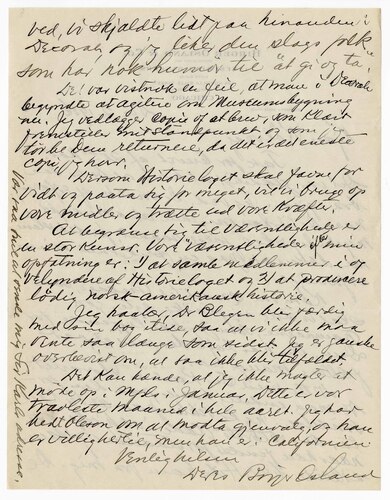 ved, vi skjældte lidt paa hinanden i
Decorah og jeg liker den slags folk
som har nok humør til at gi og ta.
Det var vistnok en feil, at man i Decorah
begyndte at agitere om Museumsbygning
nu. Jeg vedlægger copie af et brev, som klart
fremstiller mit standpunkt og som jeg
tør be Dem returnere, da det er det eneste
copi jeg har.
Dersom Historielaget skal favne for
vidt og paata sig for meget, vil vi bruge op
vore midler og trætte ud vore kræfter.
At begrænse sig til væsentligheder er
en stor kunst. Vore væsentligheder efter min
opfatning er: 1) at samle medlemmer i og
velyndere af Historielaget og 2) at producere
lødig norsk-amerikansk historie.
Jeg haaber, Dr Blegen blir færdig
med sin bog itide, saa at vi ikke maa
vente saa længe som sidst. Jeg er ganske
overbevist om, at saa ikke blir tilfældet.
Det kan hænde, at jeg ikke magter at
møde op i Mpls i Januar. Dette er vor
travleste maaned i hele aaret. Jeg har
bedt Oleson om at modta gjenvalg og han
er villig til, men han er i Californien.
Venlig hilsen
Deres Birger Osland